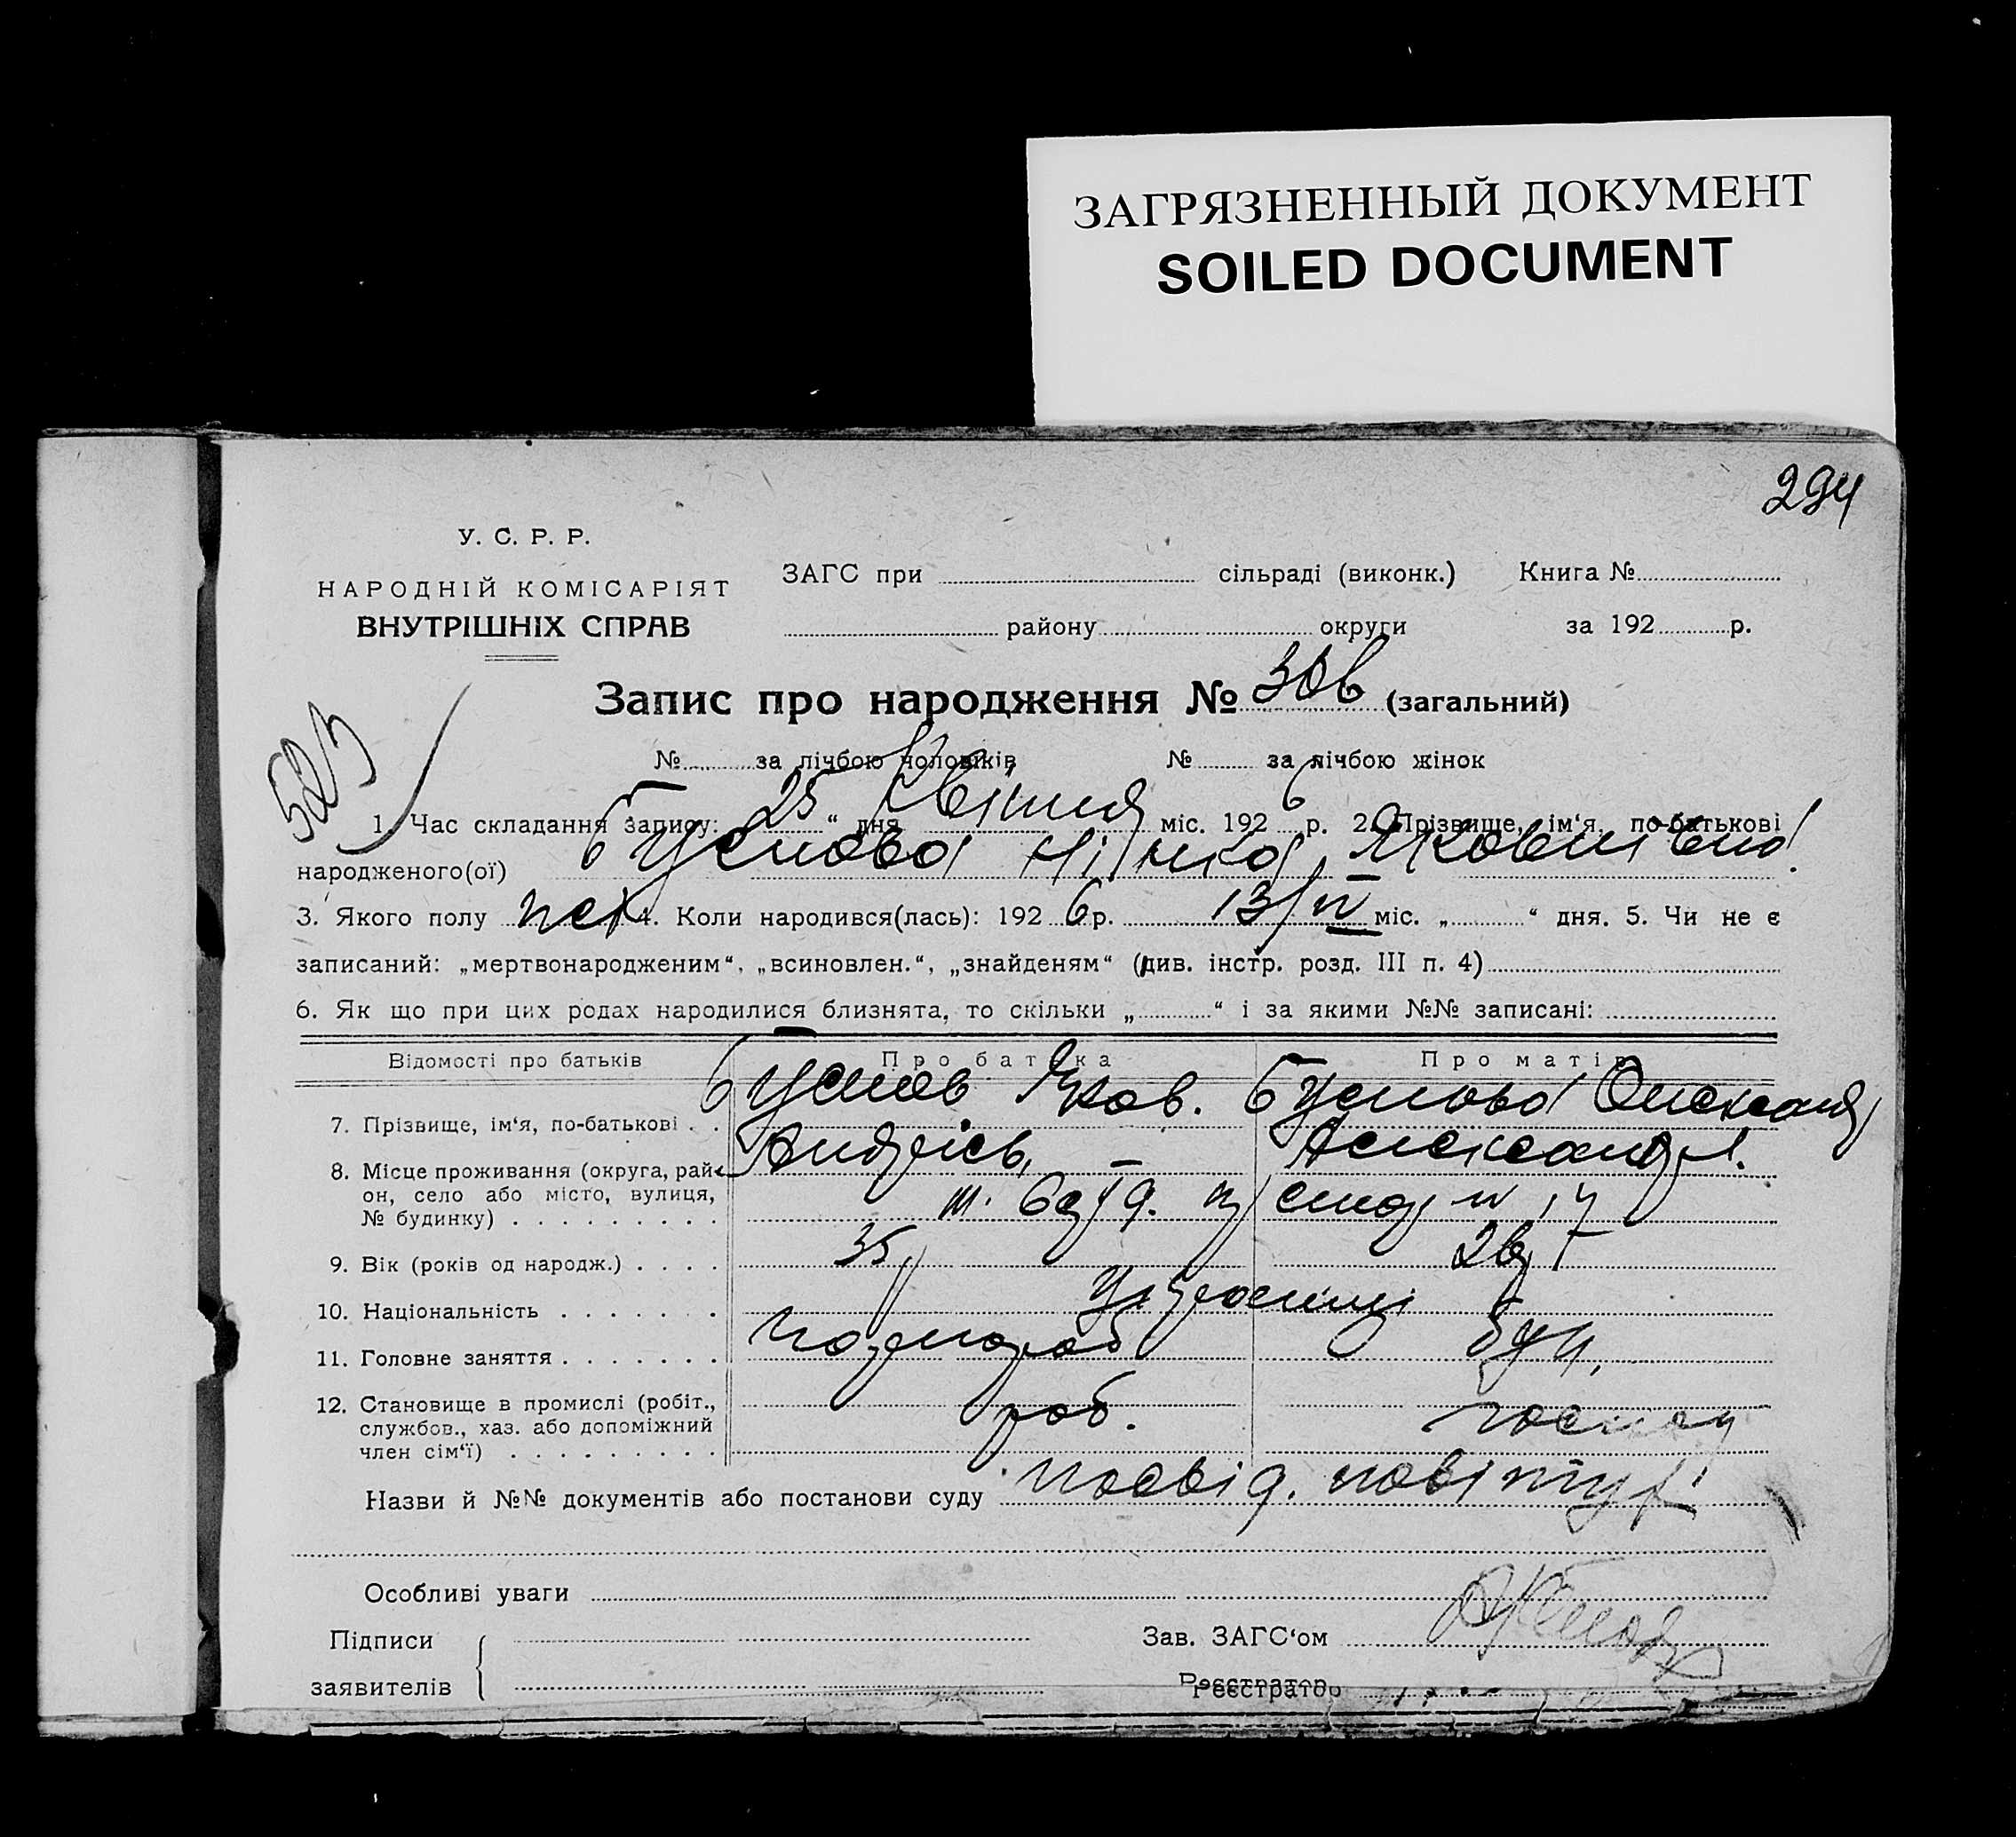 ЗАГРЯЗНЕННЫЙ ДОКУМЕНТ
SOILED DOCUMENT
294
У. С. Р. Р.
НАРОДНІЙ КОМІСАРІЯТ
ВНУТРІШНІХ СПРАВ
ЗАГС при сільраді (виконк.) Книга №
району округи за 192 р.
Запис про народження № 306 (загальний)
523
№ за лічбою чоловіків № за лічбою жінок
1. Час складання запису: 25 “ дня Квітня міс. 192 6 р. 2. Прізвище, ім‘я, по-батькові
народженого(ої) Яковлівна
3. Якого полу 4. Коли народився(лась): 192 6 р. 13/IV міс. „ “ дня. 5. Чи не є
записаний: „мертвонародженим“, „всиновлен.“, „знайденям“ (див. інстр. розд. III п. 4)
6. Як що при цих родах народилися близнята, то скільки „ “ і за якими №№ записані:
Відомості про батьків Про батька Про матір
7. Прізвище, ім‘я, по-батькові Яков.
8. Місце проживання (округа, рай-
он, село або місто, вулиця,
№ будинку)
9. Вік (років од народж.) 35 26
10. Національність Українці
11. Головне заняття
12. Становище в промислі (робіт., роб.
службов., хаз. або допоміжний
член сім‘ї)
Назви й №№ документів або постанови суду посвід.
Особливі уваги
Підписи
заявителів
Зав. ЗАГС‘ом
Реєстратор